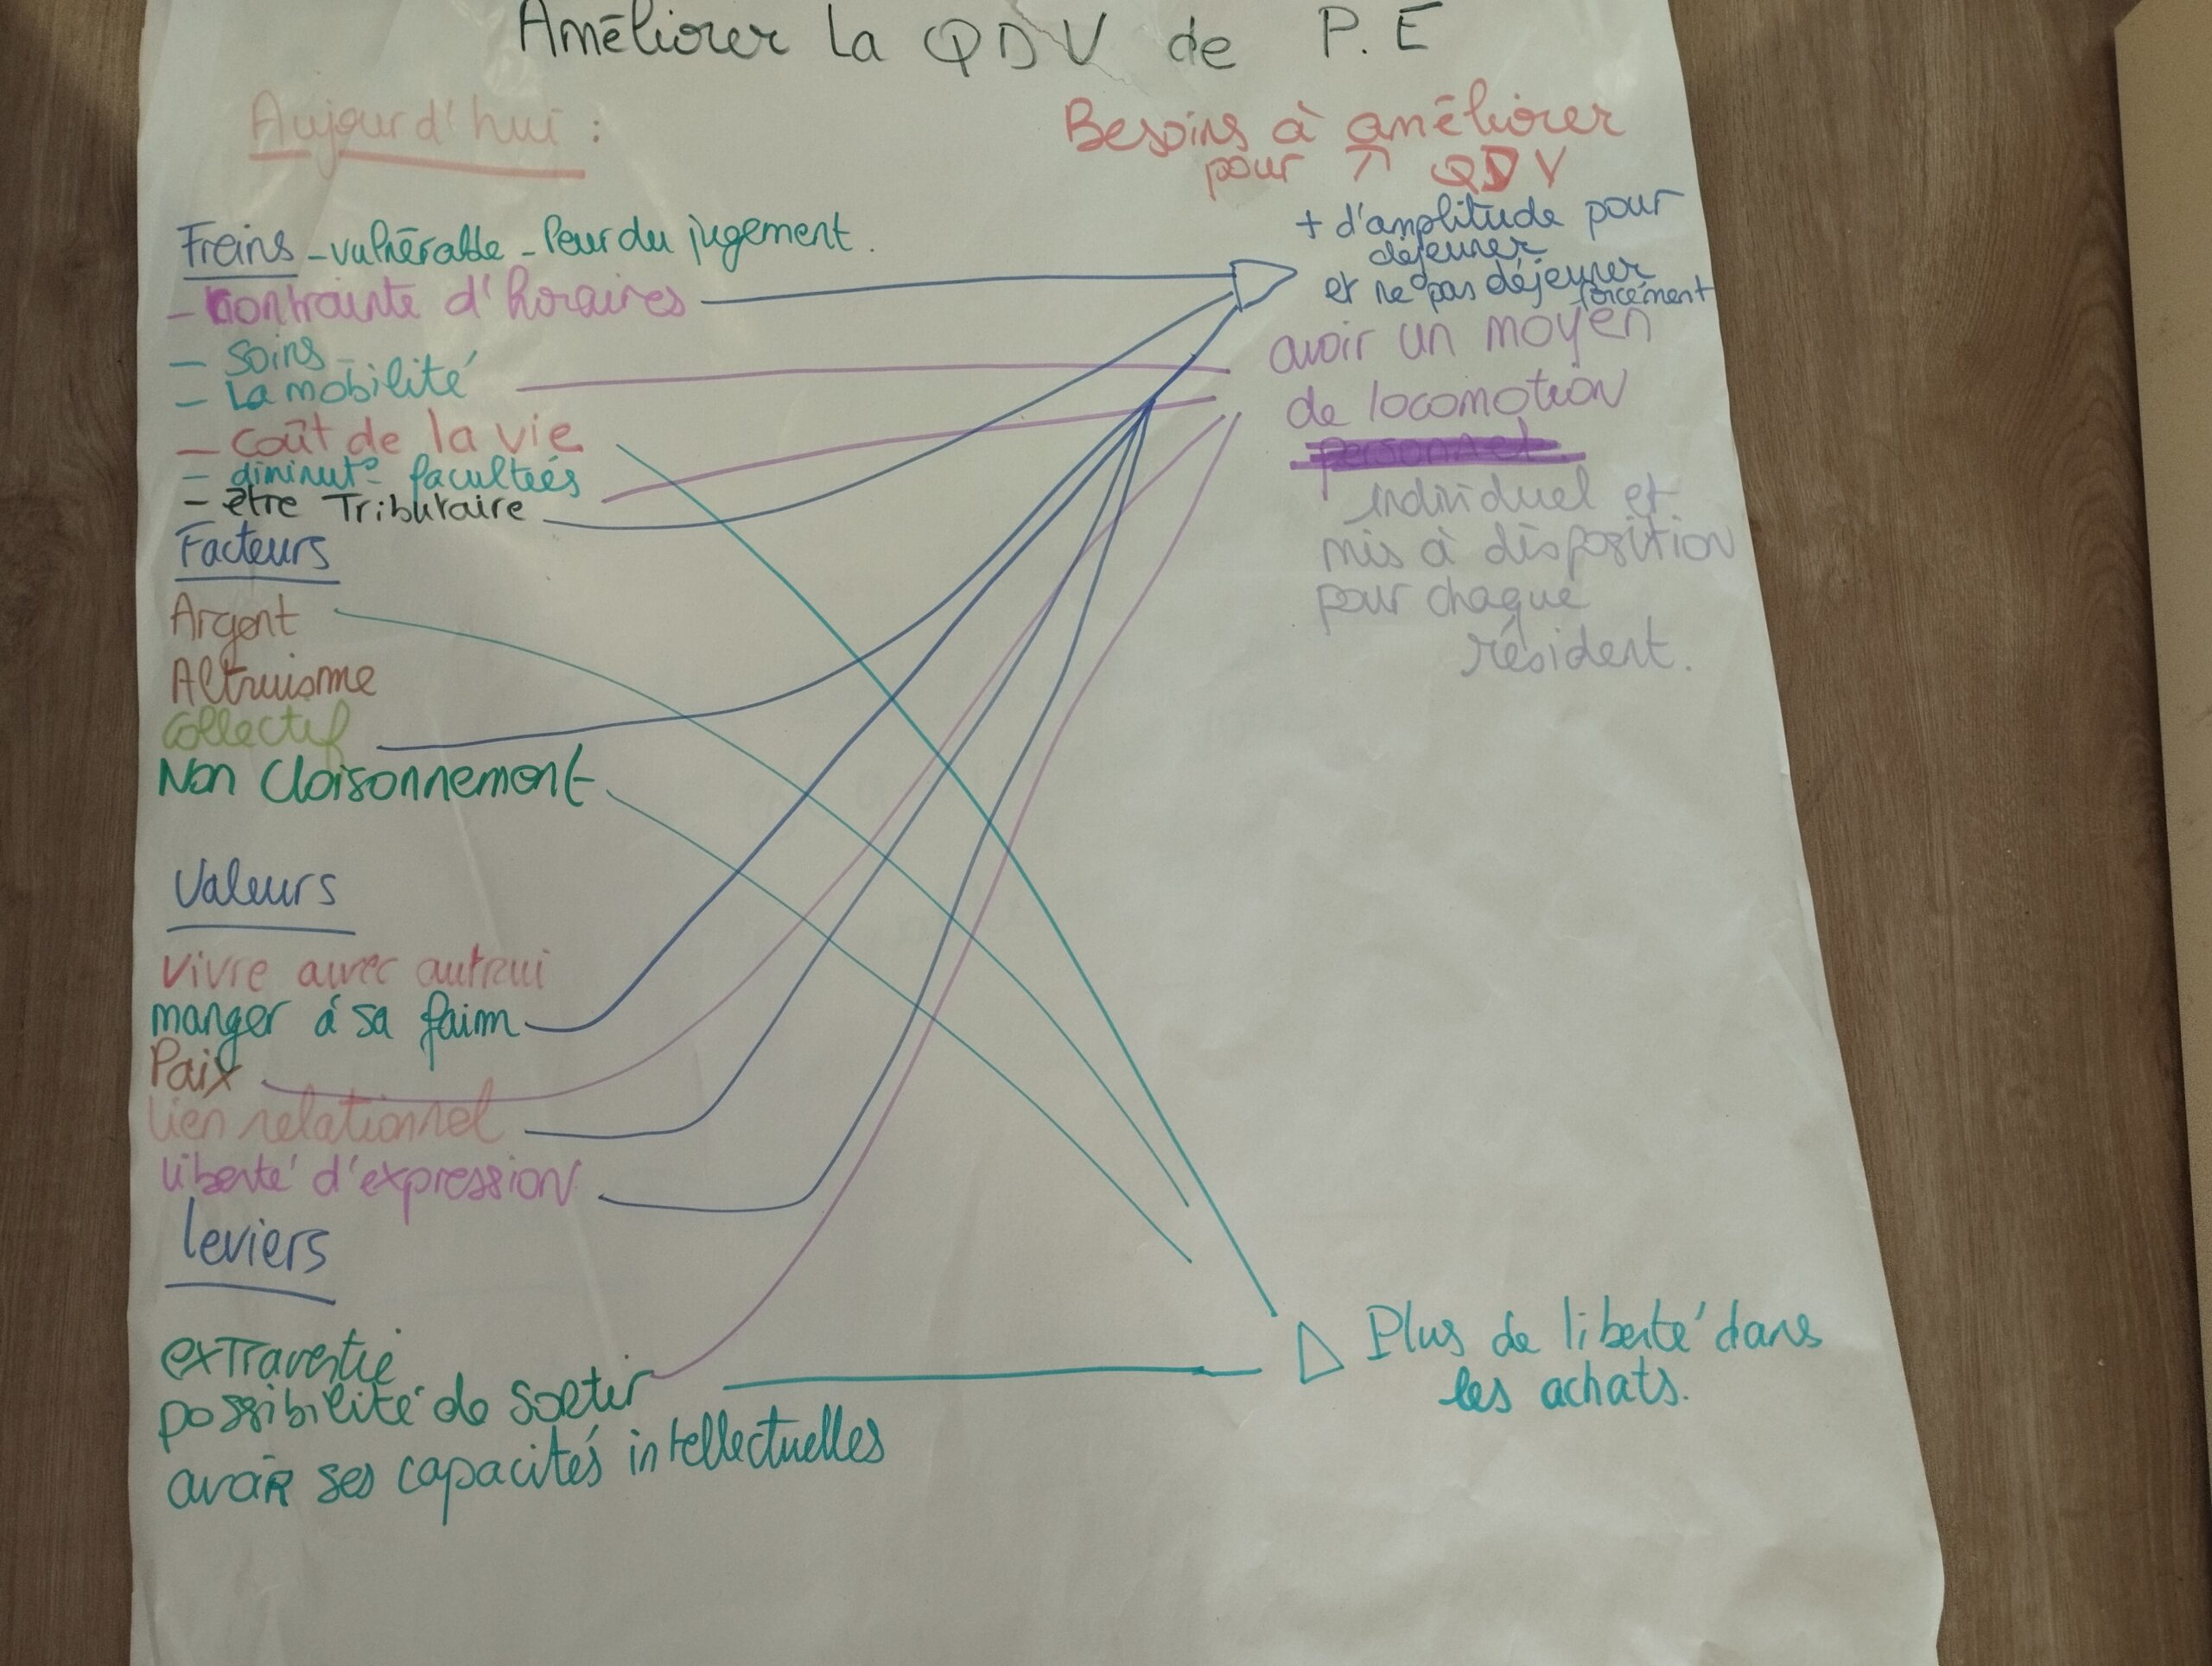 Améliorer la QDV de P.E
Aujourd'hui :
Freins - vulnérable - Peur du jugement.
- Contrainte d'horaires
- Soins
- La mobilité
- coût de la vie
- diminut° facultés
- être Tributaire
Facteurs
Argent
Altruisme
Collectif
Non Cloisonnement
Valeurs
Vivre avec autrui
manger à sa faim
Paix
lien relationnel
liberté d'expression
leviers
exTravertie
possibilité de sortir
avoir ses capacités intellectuelles
Besoins à améliorer
pour ↗ QDV
+ d'amplitude pour
déjeuner
et ne pas déjeuner
forcément
avoir un moyen
de locomotion
personnel
individuel et
mis à disposition
pour chaque
résident.
Plus de liberté dans
les achats.